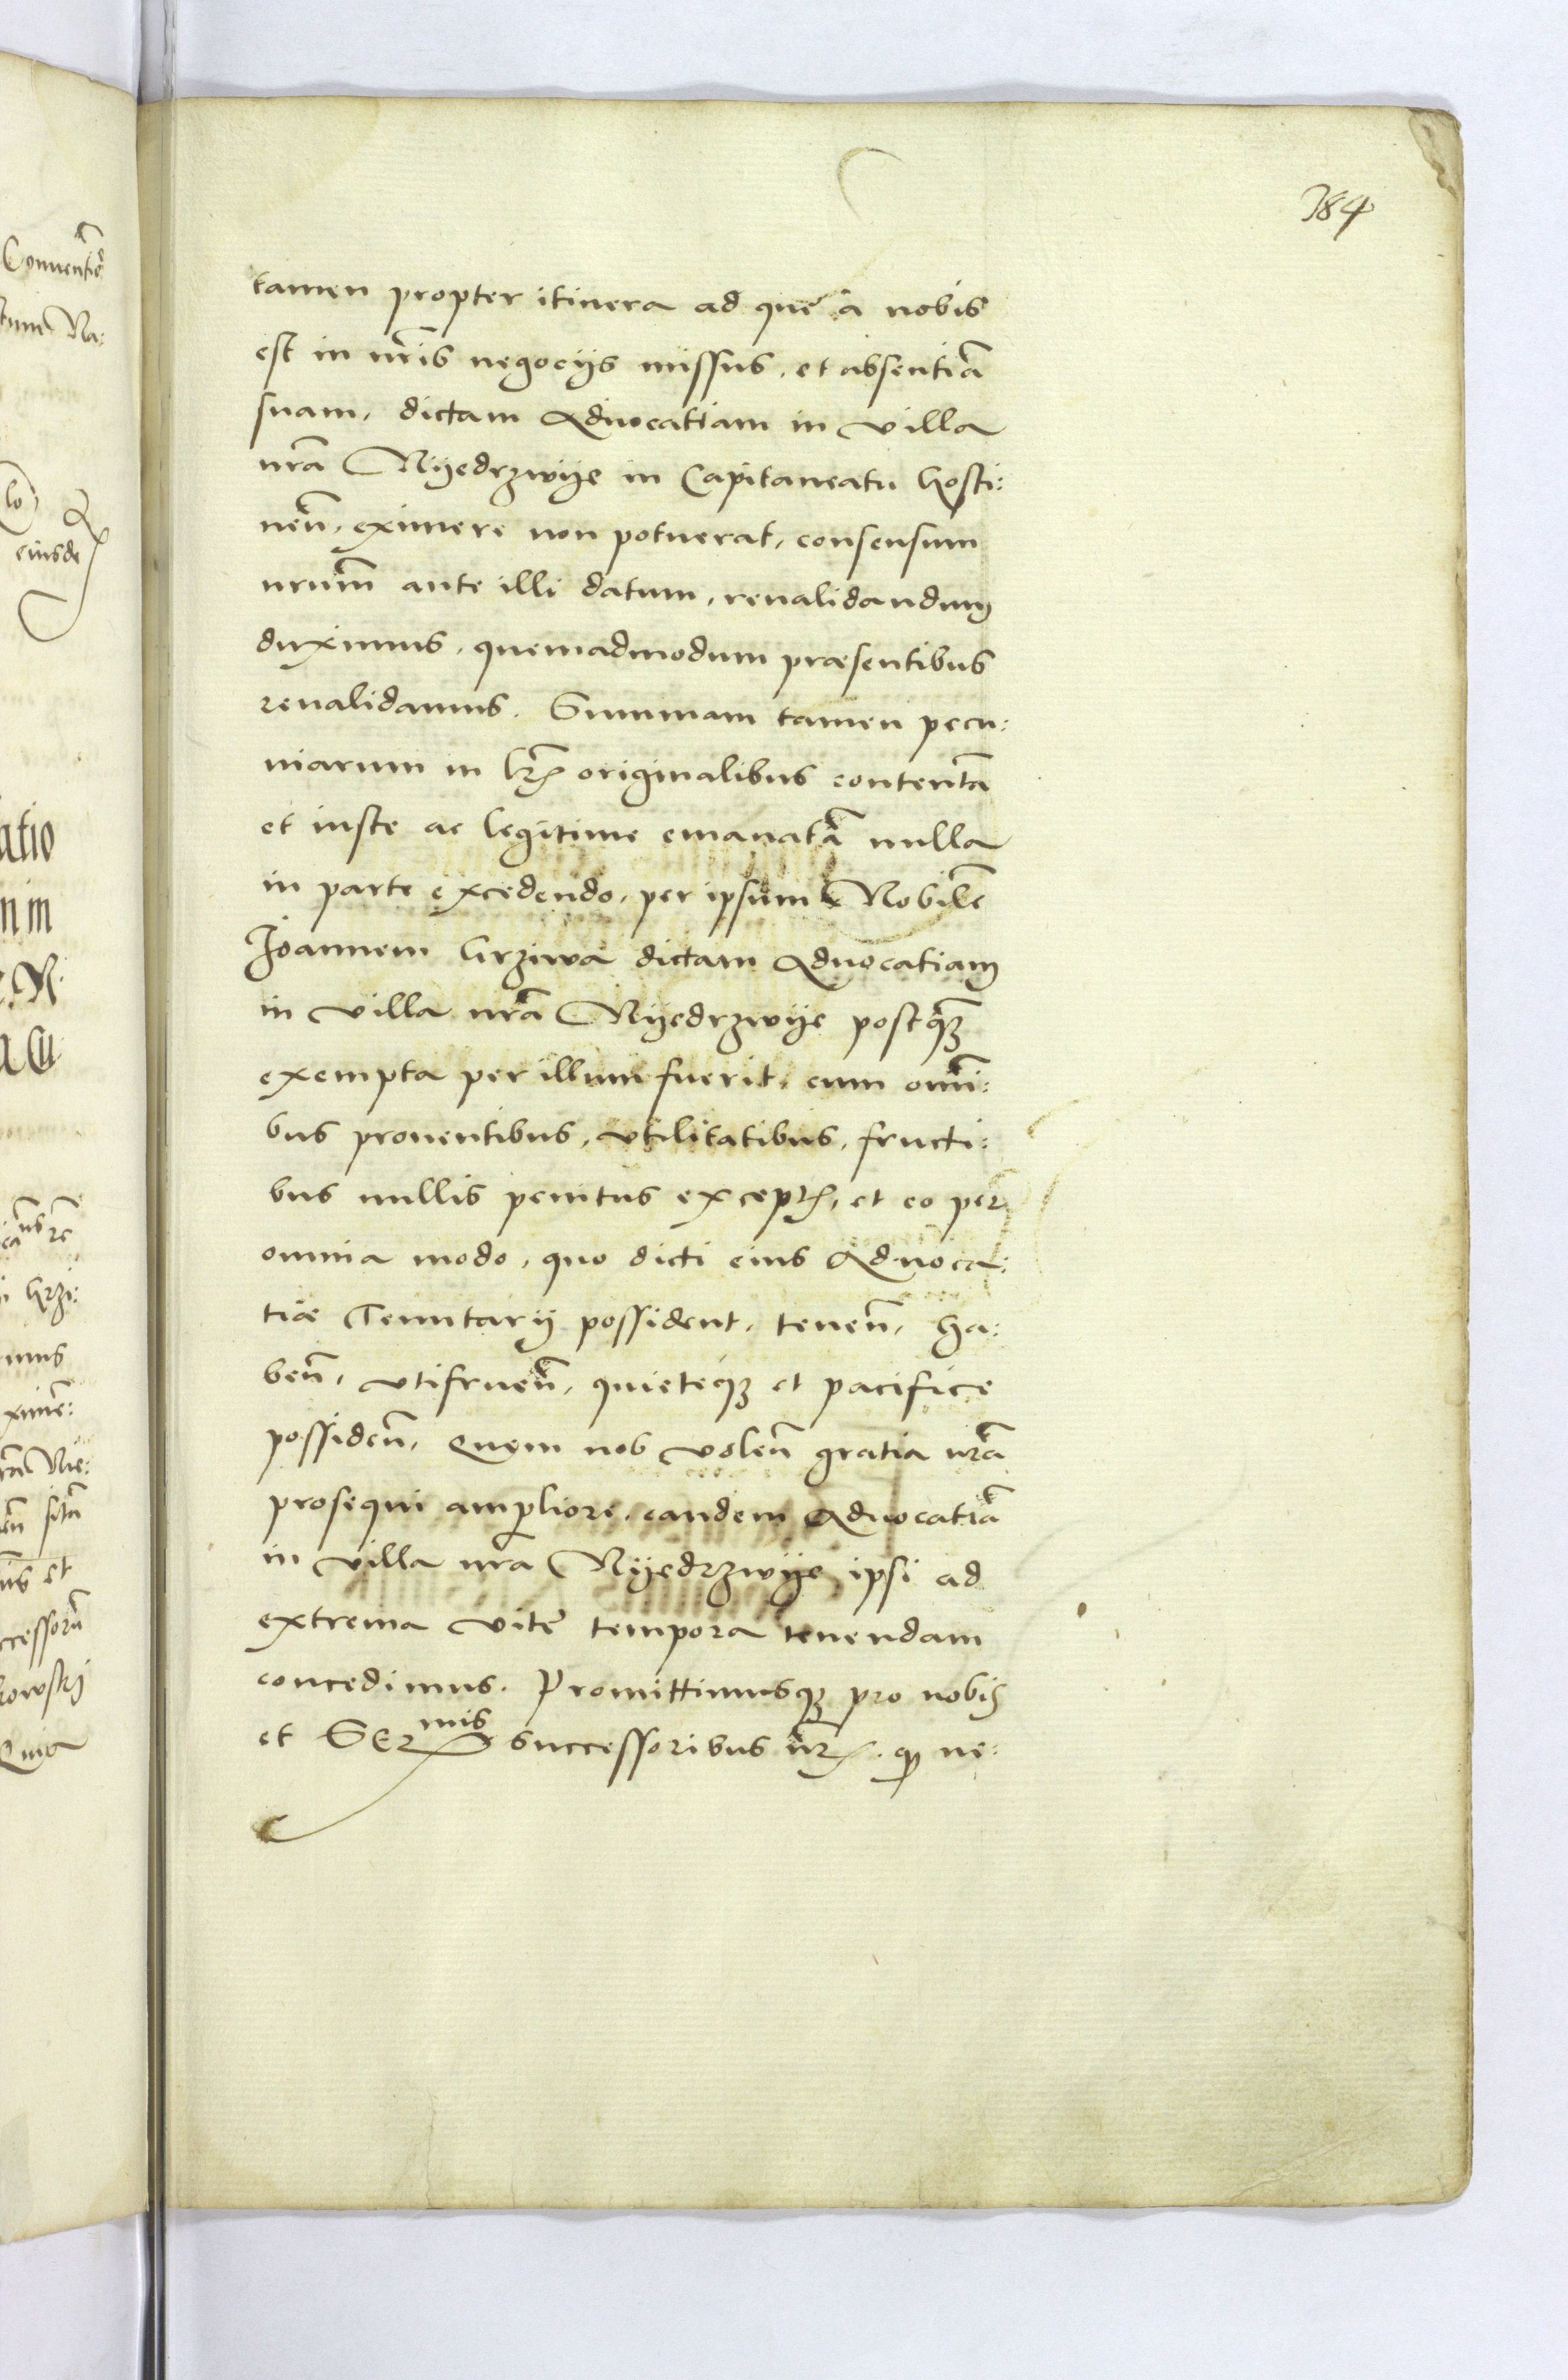 384
tamen propter itinera ad quę a nobis
est in nr̃is negocijs missus, et absentiã
suam, dictam Aduocatiam in villa
nrã Nyedrzwije in Capitaneatu hosti:
neñ, eximere non potuerat, consensum
nrum̃ ante illi datum, reualidandum
duximus, quemadmodum præsentibus
reualidamus. Summam tamen pecu:
niarum in lr̃is originalibus contentã
et iuste ac legitime emanatã nulla
in parte excedendo, per ipsum Nobilẽ
Joannem hrziwa dictam Aduocatiam
in villa nrã Nyedrzwije postqã
exempta per illum fuerit, cum omñi:
bus prouentibus, vtilitatibus, fructi:
bus nullis penitus exceptis, et eo per
omnia modo, quo dicti eius Aduoca:
tiæ Tenutarij possident, teneñ, ha:
beñ, vtifrueñ, quieteqȝ et pacifice
possideñ, Quem nos voleñ gratia nrã
prosequi ampliore, eandem Aduocatiã
in villa nrã Nyedrzwije ipsi ad
extrema vitę tempora tenendam
concedimus. Promittimusqȝ pro nobis
et SERmis successoribus nr̃is, qp ne:
Conuentiõe
eiusdẽ
atio
nim
hrzi:
imus
ximẽ:
sitã
et
ccessorũ
kowskij
Quia